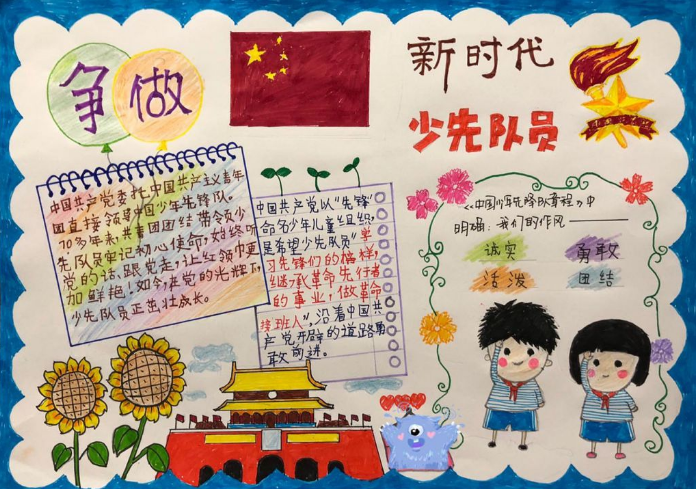 争做
新时代
少先队员
中国共产党委托中国共产主义青年
团直接领导中国少年先锋队。
70多年来,共青团团结带领少
先队员牢记初心使命,始终听
党的话、跟党走,让红领巾更
加鲜艳!如今,在党的光辉下,
少先队员正茁壮成长。
中国共产党以“先锋”
命名少年儿童组织,
是希望少先队员“学
习先锋们的榜样,
继承革命先行者
的事业,做革命
接班人”,沿着中国共
产党开辟的道路勇
敢前进。
《中国少年先锋队章程》中
明确:我们的作风——
诚实
勇敢
活泼
团结